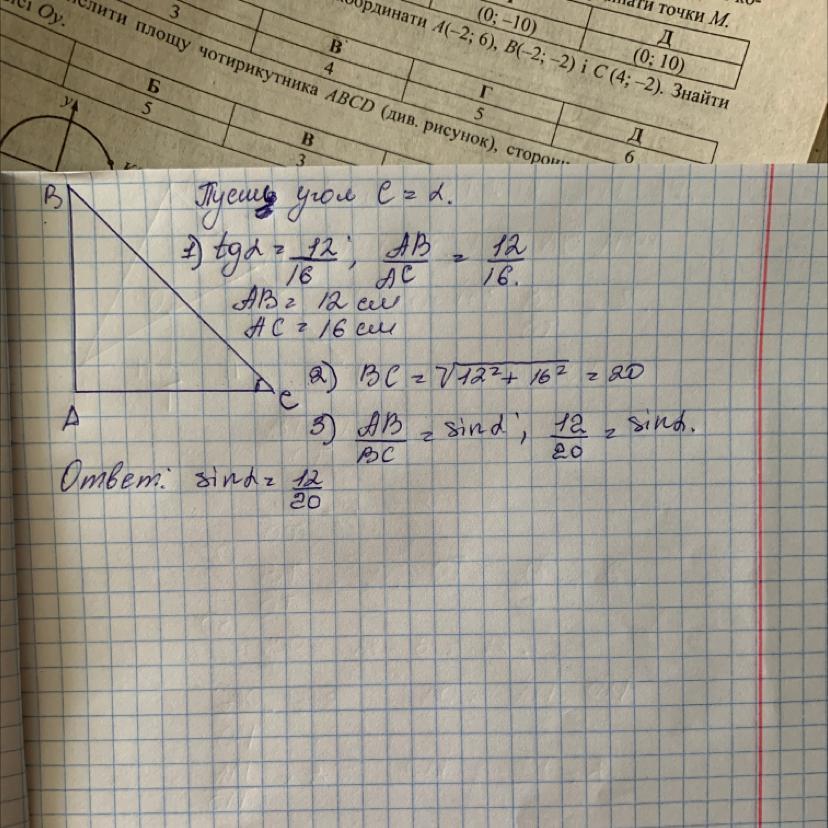 (0; –10)
точки M.
3
Д
(0; 10)
осі Oy.
координати A(–2; 6), B(–2; –2) і C (4; –2). Знайти
В
4
Г
5
Д
6
площу чотирикутника ABCD (див. рисунок),
Б
5
В
3
y
B
Пусть угол C = α.
1) tgα = 12/16 ; AB/AC = 12/16.
AB = 12 см
AC = 16 см
2) BC = √12² + 16² = 20
C
A
3) AB/BC = sinα ; 12/20 = sinα.
Ответ: sinα = 12/20